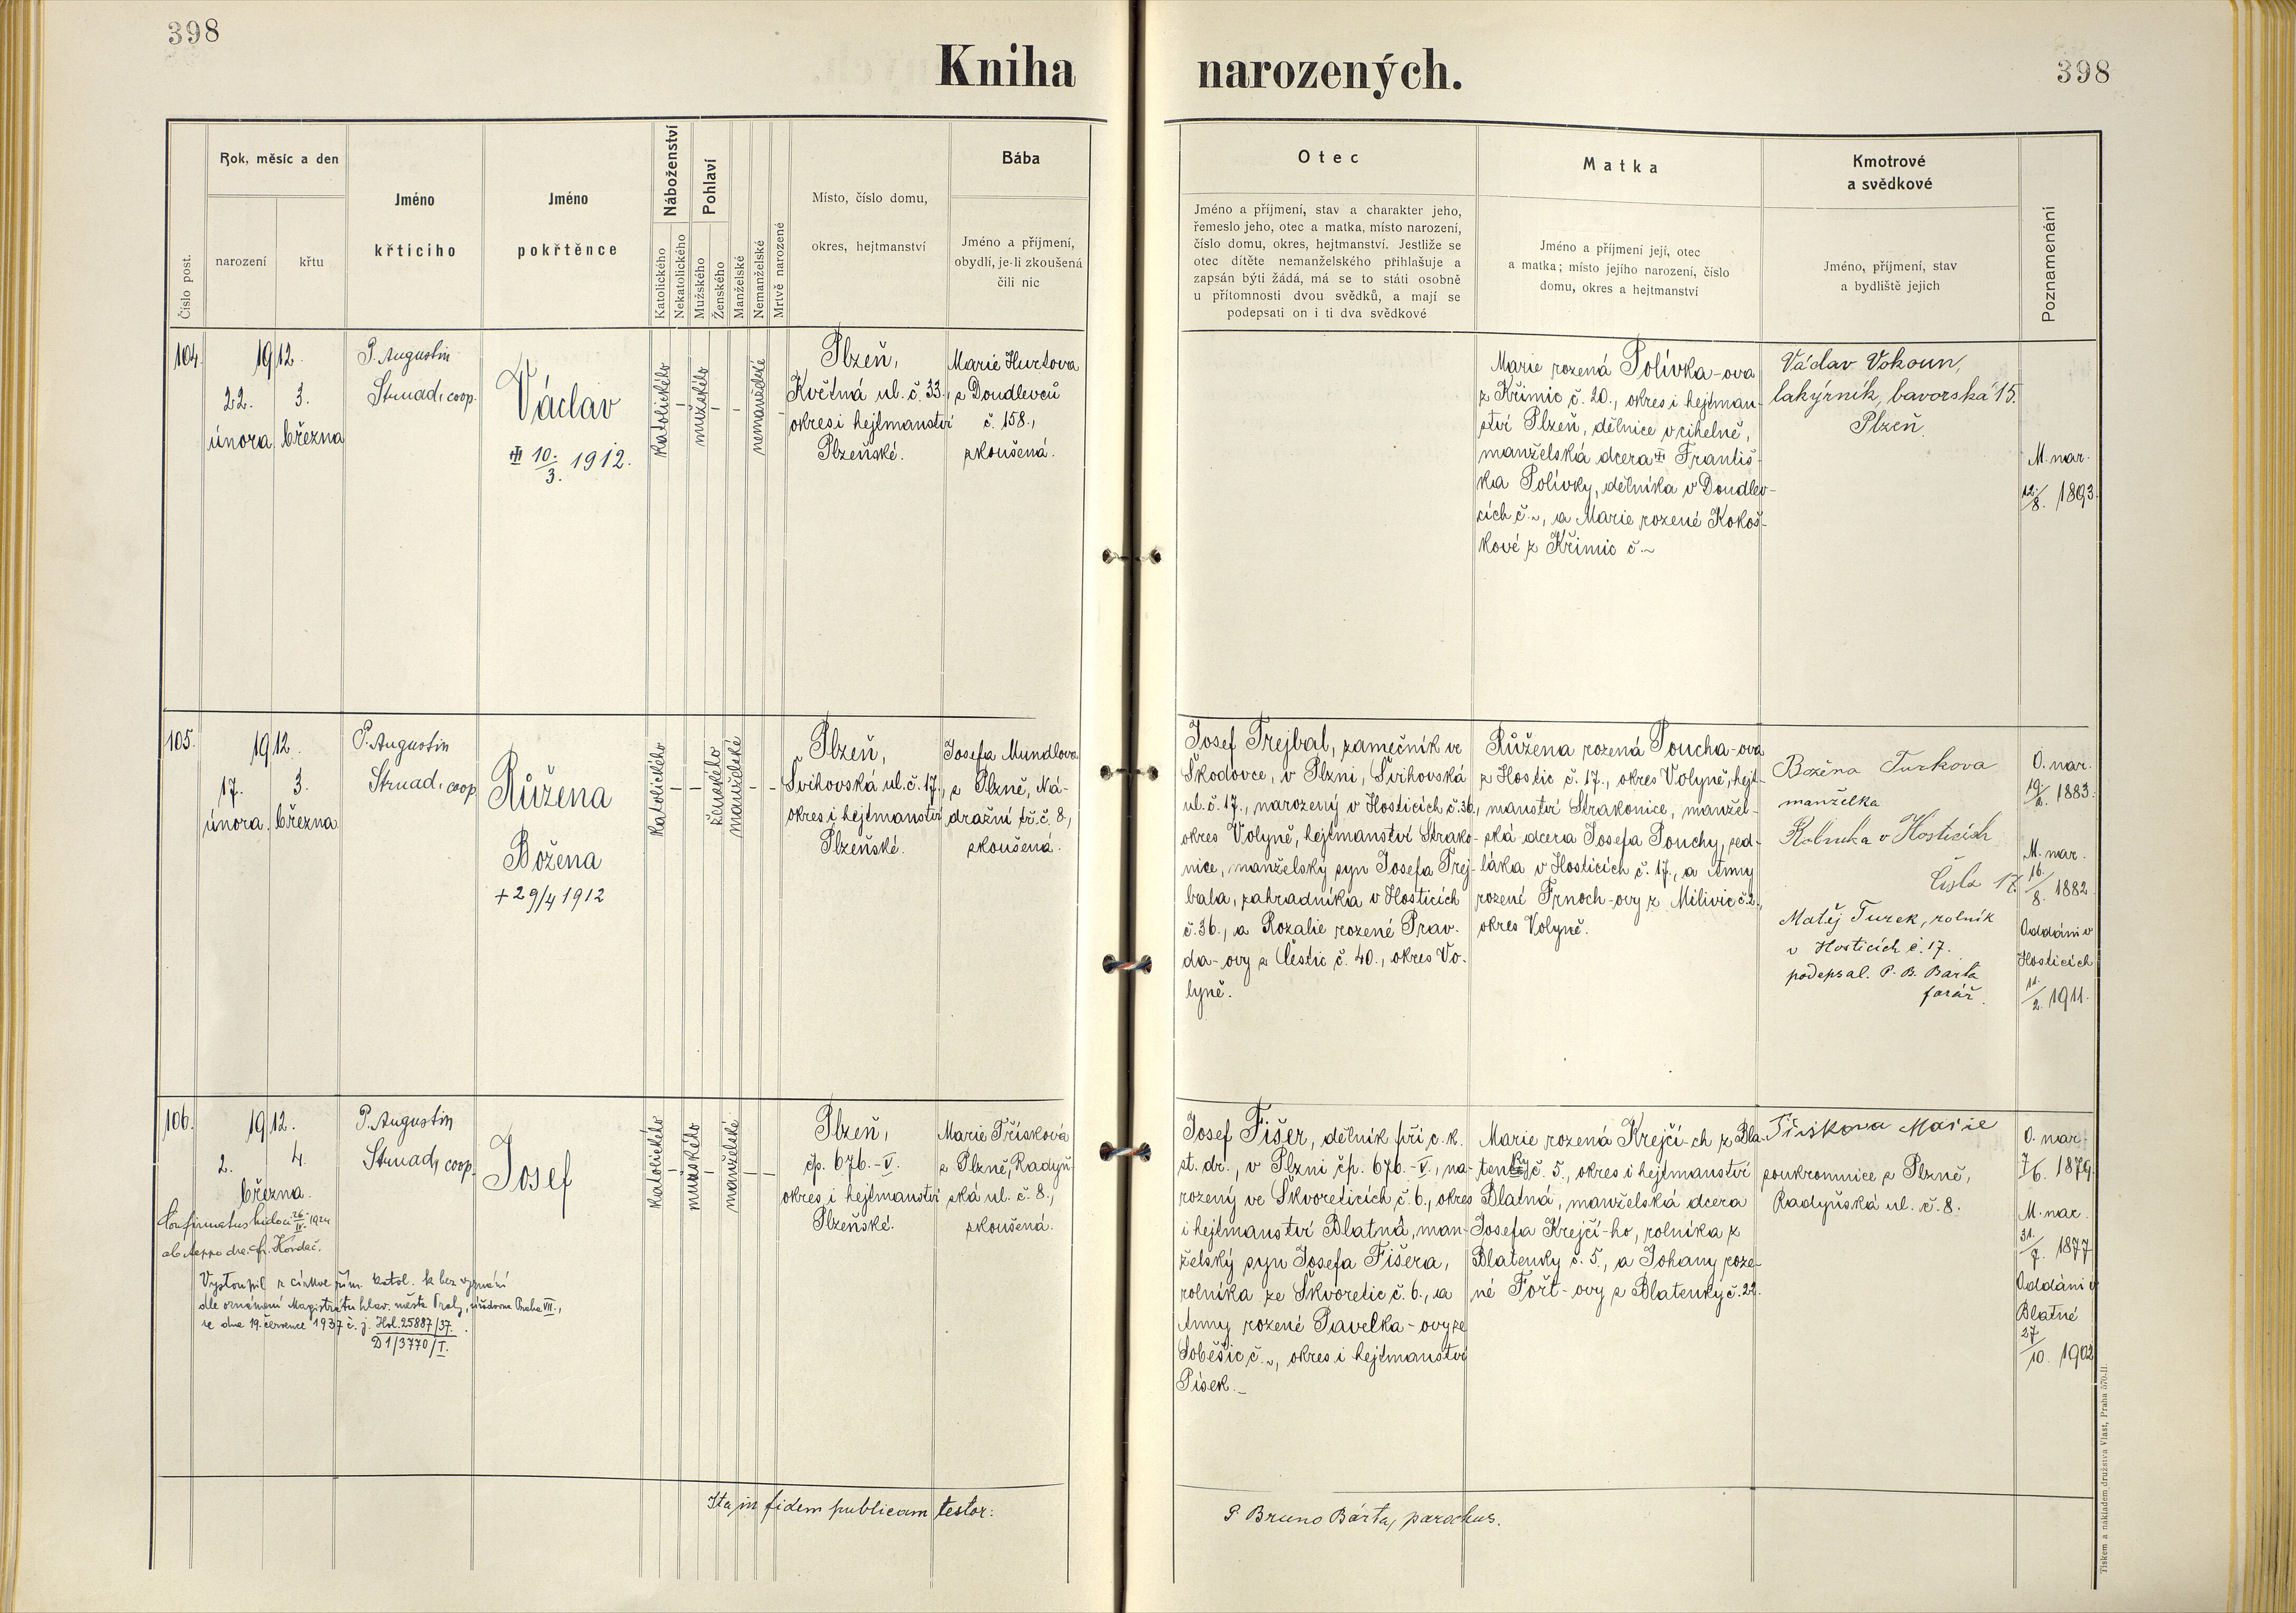 398
398
Kniha narozených.
Číslo post.
Rok, měsíc a den
narození
křtu
Jméno
křtícího
Jméno
pokřtěnce
Náboženství
Katolického
Nekatolického
Pohlaví
Mužského
Ženského
Manželské
Nemanželské
Mrtvě narozené
Místo, číslo domu,
okres, hejtmanství
Bába
Jméno a příjmení,
obydlí, je-li zkoušená
čili nic
Otec
Jméno a příjmení, stav a charakter jeho,
řemeslo jeho, otec a matka, místo narození,
číslo domu, okres, hejtmanství. Jestliže se
otec dítěte nemanželského přihlašuje a
zapsán býti žádá, má se to státi osobně
u přítomnosti dvou svědků, a mají se
podepsati on i ti dva svědkové
Matka
Jméno a příjmení její, otec
a matka; místo jejího narození, číslo
domu, okres a hejtmanství
Kmotrové
a svědkové
Jméno, příjmení, stav
a bydliště jejich
Poznamenání
104.
1912.
22. 3.
února března
P. Augustin
Strnad, coop.
Václav
10./3. 1912.
katolického
mužského
nemanželské
Plzeň,
Květná ul. č. 33.,
okres i hejtmanství
Plzeňské.
Marie Hurtova
z Doudlevců
č. 158.,
zkoušená.
Marie rozená Polívka-ova
z Křimic č. 20., okres i hejtman-
ství Plzeň, dělnice v cihelně,
manželská dcera Františ-
ka Polívky, dělníka v Doudlev-
cích č. ~, a Marie rozené Kokoš-
kové z Křimic č. ~
Václav Vokoun,
lakýrník, bavorská 15.
Plzeň.
M. nar.
12./8. 1893.
105.
1912.
17. 3.
února března
P. Augustin
Strnad, coop.
Růžena
Božena
+ 29/4 1912
katolického
ženského
manželské
Plzeň,
Švihovská ul. č. 17.,
okres i hejtmanství
Plzeňské.
Josefa Mundlova
z Plzně, Ná-
dražní tř. č. 8.,
zkoušená.
Josef Trejbal, zámečník ve
Škodovce, v Plzni, Švihovská
ul. č. 17., narozený v Hosticích č. 36.,
okres Volyně, hejtmanství Strako-
nice, manželský syn Josefa Trej-
bala, zahradníka v Hosticích
č. 36., a Rozalie rozené Prav-
da-ovy z Čestic č. 40., okres Vo-
lyně.
Růžena rozená Poucha-ova
z Hostic č. 17., okres Volyně, hejt-
manství Strakonice, manžel-
ská dcera Josefa Pouchy, sed-
láka v Hosticích č. 17., a Anny
rození Frnoch-ovy z Milivic č. 2.,
okres Volyně.
Božena Turkova
manželka
Rolnika v Hosticích
Čísla 17.
Matěj Turek, rolník
v Hosticích č. 17.
podepsal. P. B. Barta
farář.
O. nar.
1883.
M. nar.
16./8. 1882.
Oddáni v
Hosticích
11./2. 1911.
106.
1912.
2. 4.
března.
Confirmatus hic loci 26./IV. 1924
ab Aeppo dre. Fr. Kordač.
Vystoupil z církve řím. katol. k bez vyznání
dle oznámení Magistrátu hlav. města Prahy, úřadovna Praha VII.,
ze dne 19. července 1937 č. j. Hol. 25887/37.
D1/3770/I.
P. Augustin
Strnad, coop.
Josef
katolického
mužského
manželské
Plzeň,
čp. 676.-V.
okres i hejtmanství
Plzeňské.
Marie Třísková
z Plzně, Radyň-
ská ul. č. 8.,
zkoušená.
Josef Fišer, dělník při c. k.
st. dr., v Plzni čp. 676.-V., na-
rozený ve Škvoreticích č. 6., okres
i hejtmanství Blatná, man-
želský syn Josefa Fišera,
rolníka ze Škvoretic č. 6., a
Anny rozené Pavelka-ovy ze
Soběšic č. ~, okres i hejtmanství
Písek. _
Marie rozená Krejčí-ch z Bla-
tenky č. 5., okres i hejtmanství
Blatná, manželská dcera
Josefa Krejčí-ho, rolníka z
Blatenky č. 5., a Johany roze-
né Fořt-ovy z Blatenky č. 22.
Třískova Marie
soukromnice z Plzně,
Radyňská ul. č. 8.
O. nar.
7/6. 1879.
M. nar.
31./7. 1877
Oddáni v
Blatné
27/10. 1902
Ita in fidem publicam testor:
P. Bruno Bárta, parochus.
Tiskem a nákladem družstva Vlast, Praha 570-II.